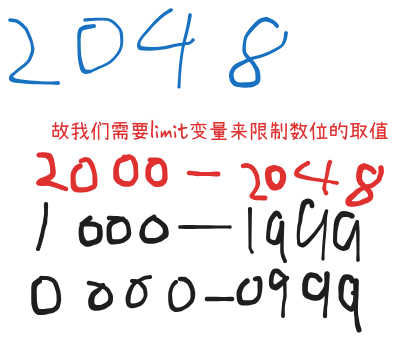 2048
故我们需要limit变量来限制数位的取值
2000-2048
1000-1999
0000-0999